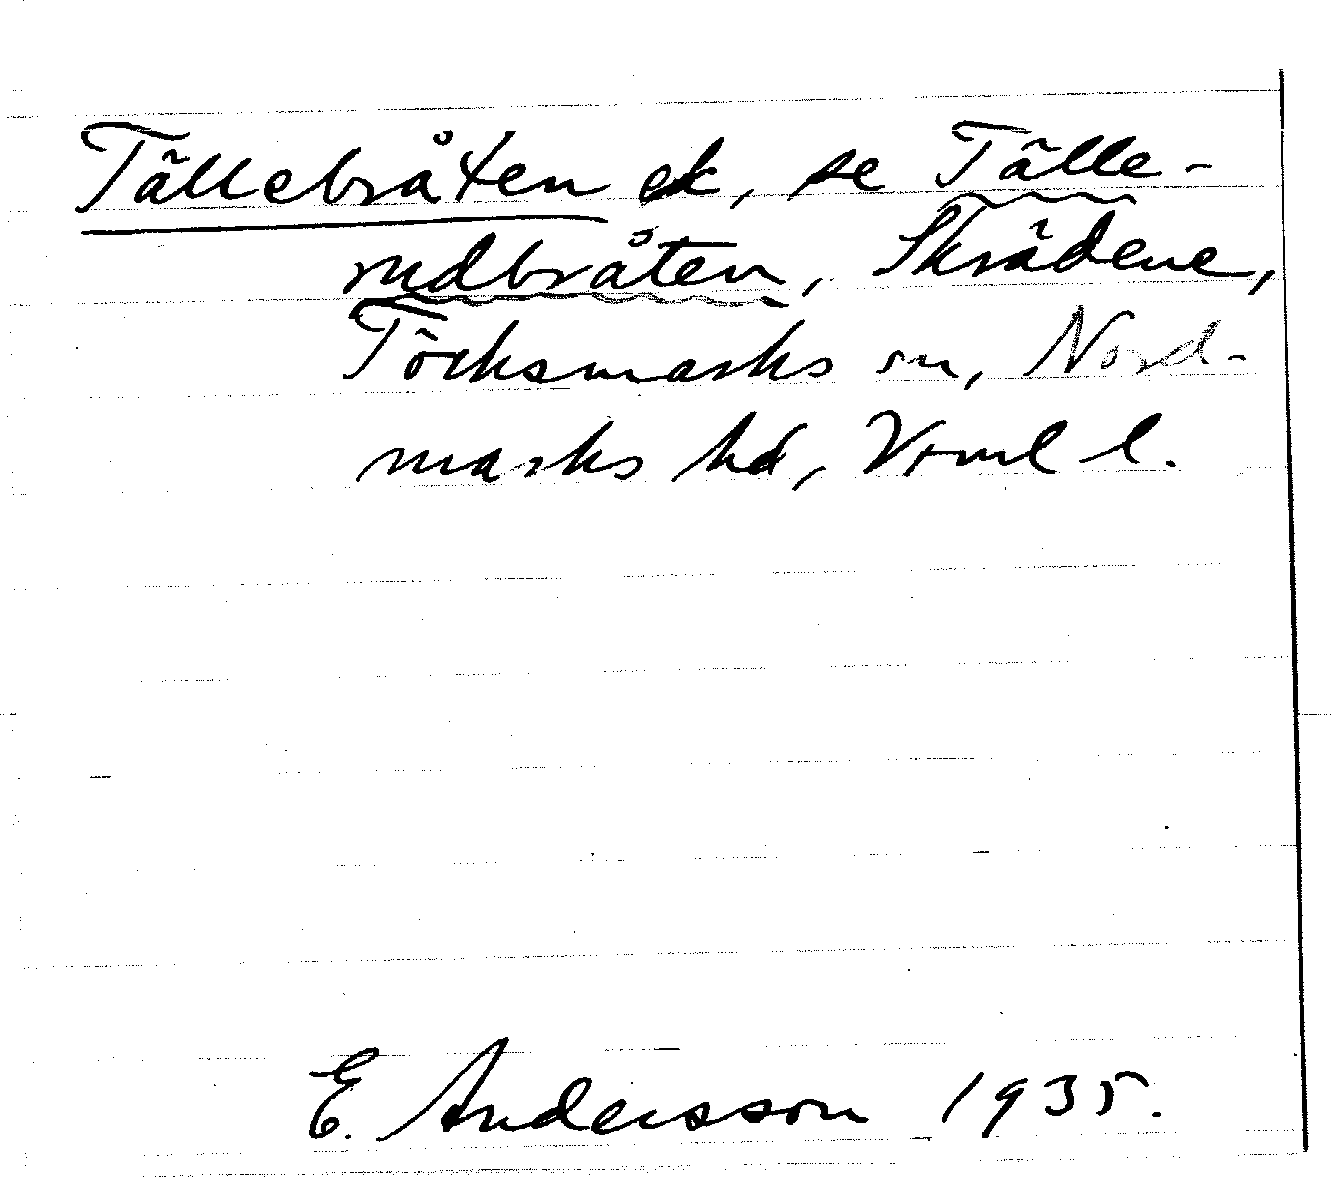 Tällebråten ek, se Tälle-
rudbråten, Skrädene,
Töcksmarks sn, Nord-
marks hd, Vrml l.
E. Andersson 1935.